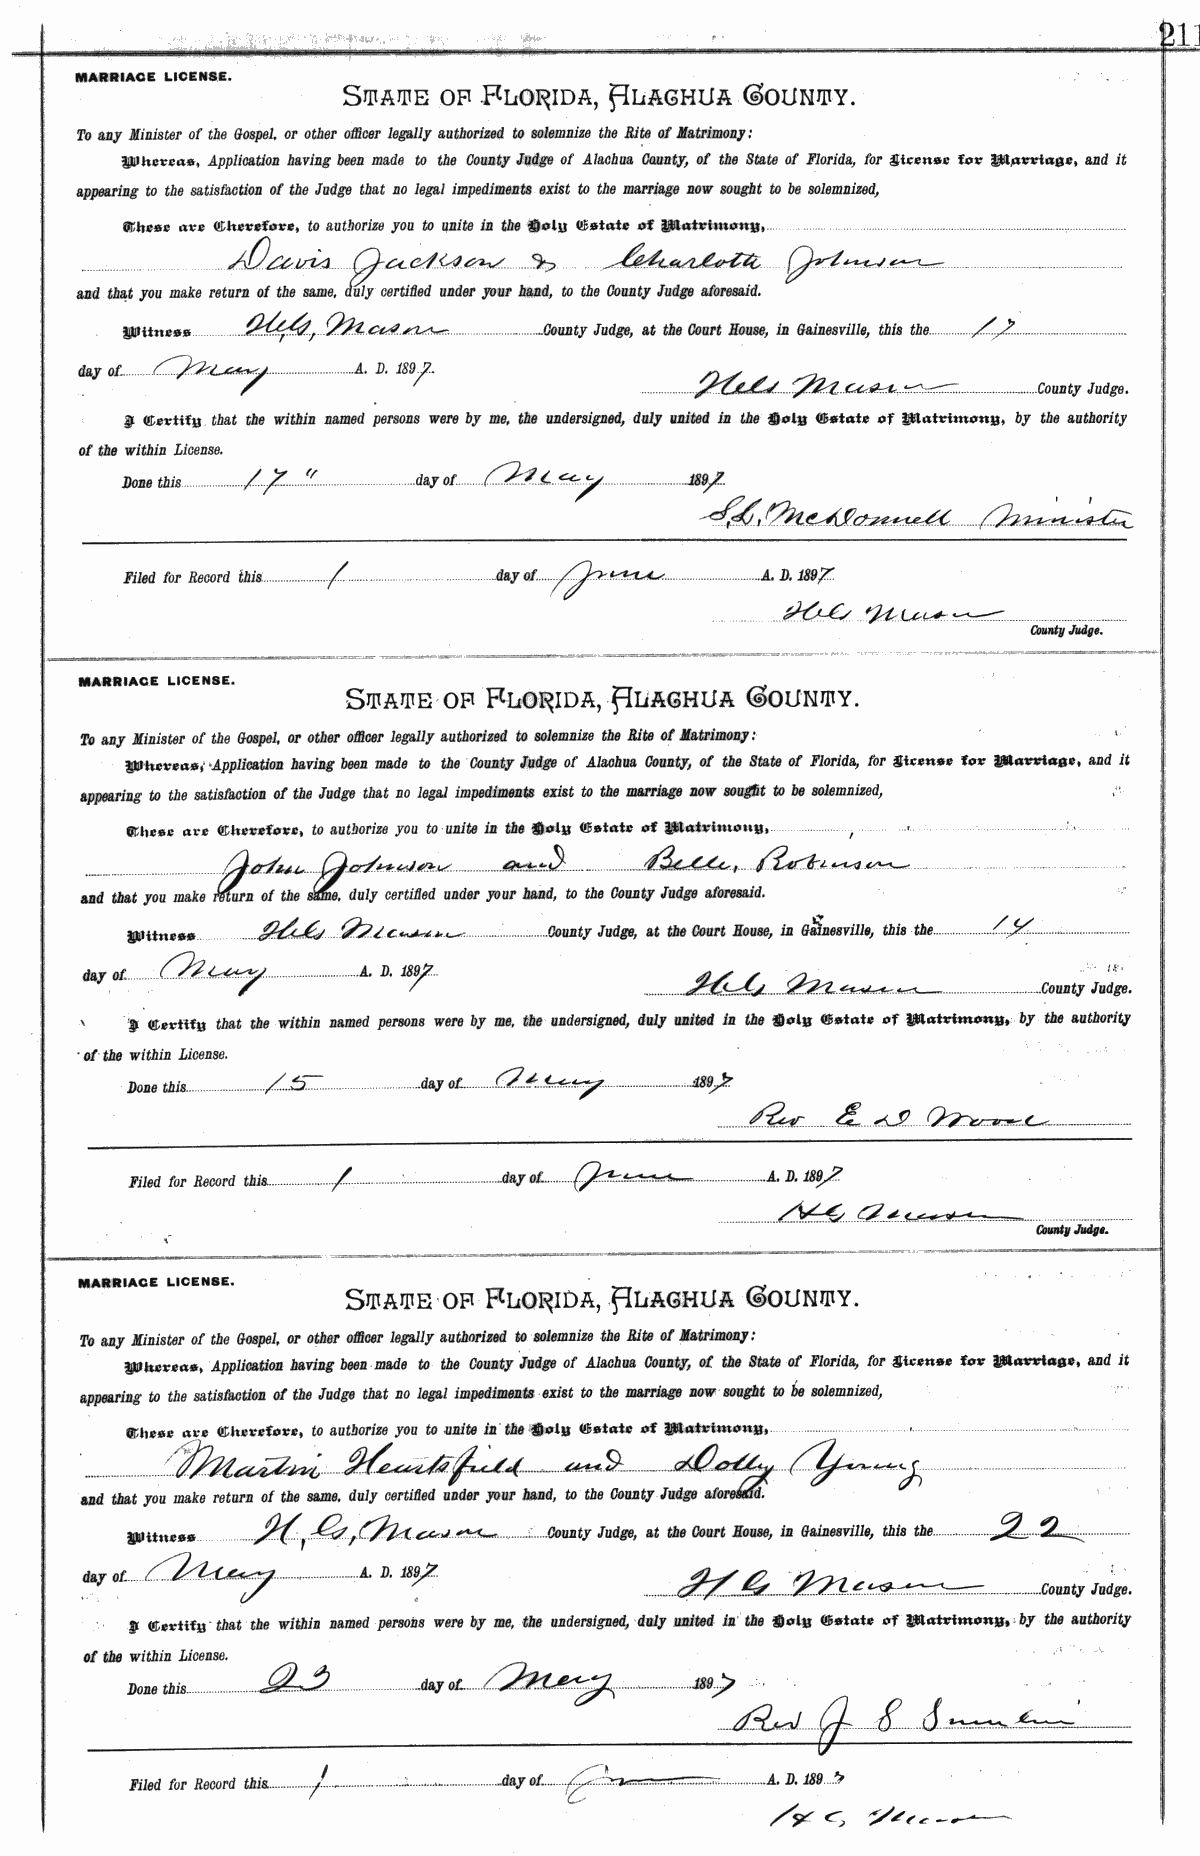 211
MARRIAGE LICENSE.
STATE OF FLORIDA, ALACHUA COUNTY.
To any Minister of the Gospel, or other officer legally authorized to solemnize the Rite of Matrimony:
Whereas, Application having been made to the County Judge of Alachua County, of the State of Florida, for License for Marriage, and it
appearing to the satisfaction of the Judge that no legal impediments exist to the marriage now sought to be solemnized,
These are Therefore, to authorize you to unite in the Holy Estate of Matrimony,
Davis Jackson & Charloth Johnson
and that you make return of the same, duly certified under your hand, to the County Judge aforesaid.
Witness H,G, Mason County Judge, at the Court House, in Gainesville, this the 17
day of May A. D. 1897.
HG Mason County Judge.
I Certify that the within named persons were by me, the undersigned, duly united in the Holy Estate of Matrimony, by the authority
of the within License.
Done this 17" day of May 1897
S.L. McDonnell Minister
Filed for Record this 1 day of June A. D. 1897
HG Mason
County Judge.
MARRIAGE LICENSE.
STATE OF FLORIDA, ALACHUA COUNTY.
To any Minister of the Gospel, or other officer legally authorized to solemnize the Rite of Matrimony:
Whereas, Application having been made to the County Judge of Alachua County, of the State of Florida, for License for Marriage, and it
appearing to the satisfaction of the Judge that no legal impediments exist to the marriage now sought to be solemnized,
These are Therefore, to authorize you to unite in the Holy Estate of Matrimony,
John Johnson and Belle, Robinson
and that you make return of the same, duly certified under your hand, to the County Judge aforesaid.
Witness HG Mason County Judge, at the Court House, in Gainesville, this the 14
day of May A. D. 1897
HG Mason County Judge.
I Certify that the within named persons were by me, the undersigned, duly united in the Holy Estate of Matrimony, by the authority
of the within License.
Done this 15 day of May 1897
Rev E D Wood
Filed for Record this 1 day of June A. D. 1897
HG Mason
County Judge.
MARRIAGE LICENSE.
STATE OF FLORIDA, ALACHUA COUNTY.
To any Minister of the Gospel, or other officer legally authorized to solemnize the Rite of Matrimony:
Whereas, Application having been made to the County Judge of Alachua County, of the State of Florida, for License for Marriage, and it
appearing to the satisfaction of the Judge that no legal impediments exist to the marriage now sought to be solemnized,
These are Therefore, to authorize you to unite in the Holy Estate of Matrimony,
Martin Heartsfield and Dolly Young
and that you make return of the same, duly certified under your hand, to the County Judge aforesaid.
Witness H, G, Mason County Judge, at the Court House, in Gainesville, this the 22
day of May A. D. 1897
H G Mason County Judge.
I Certify that the within named persons were by me, the undersigned, duly united in the Holy Estate of Matrimony, by the authority
of the within License.
Done this 23 day of May 1897
Rev J S
Filed for Record this 1 day of June A. D. 1897
H G Mason